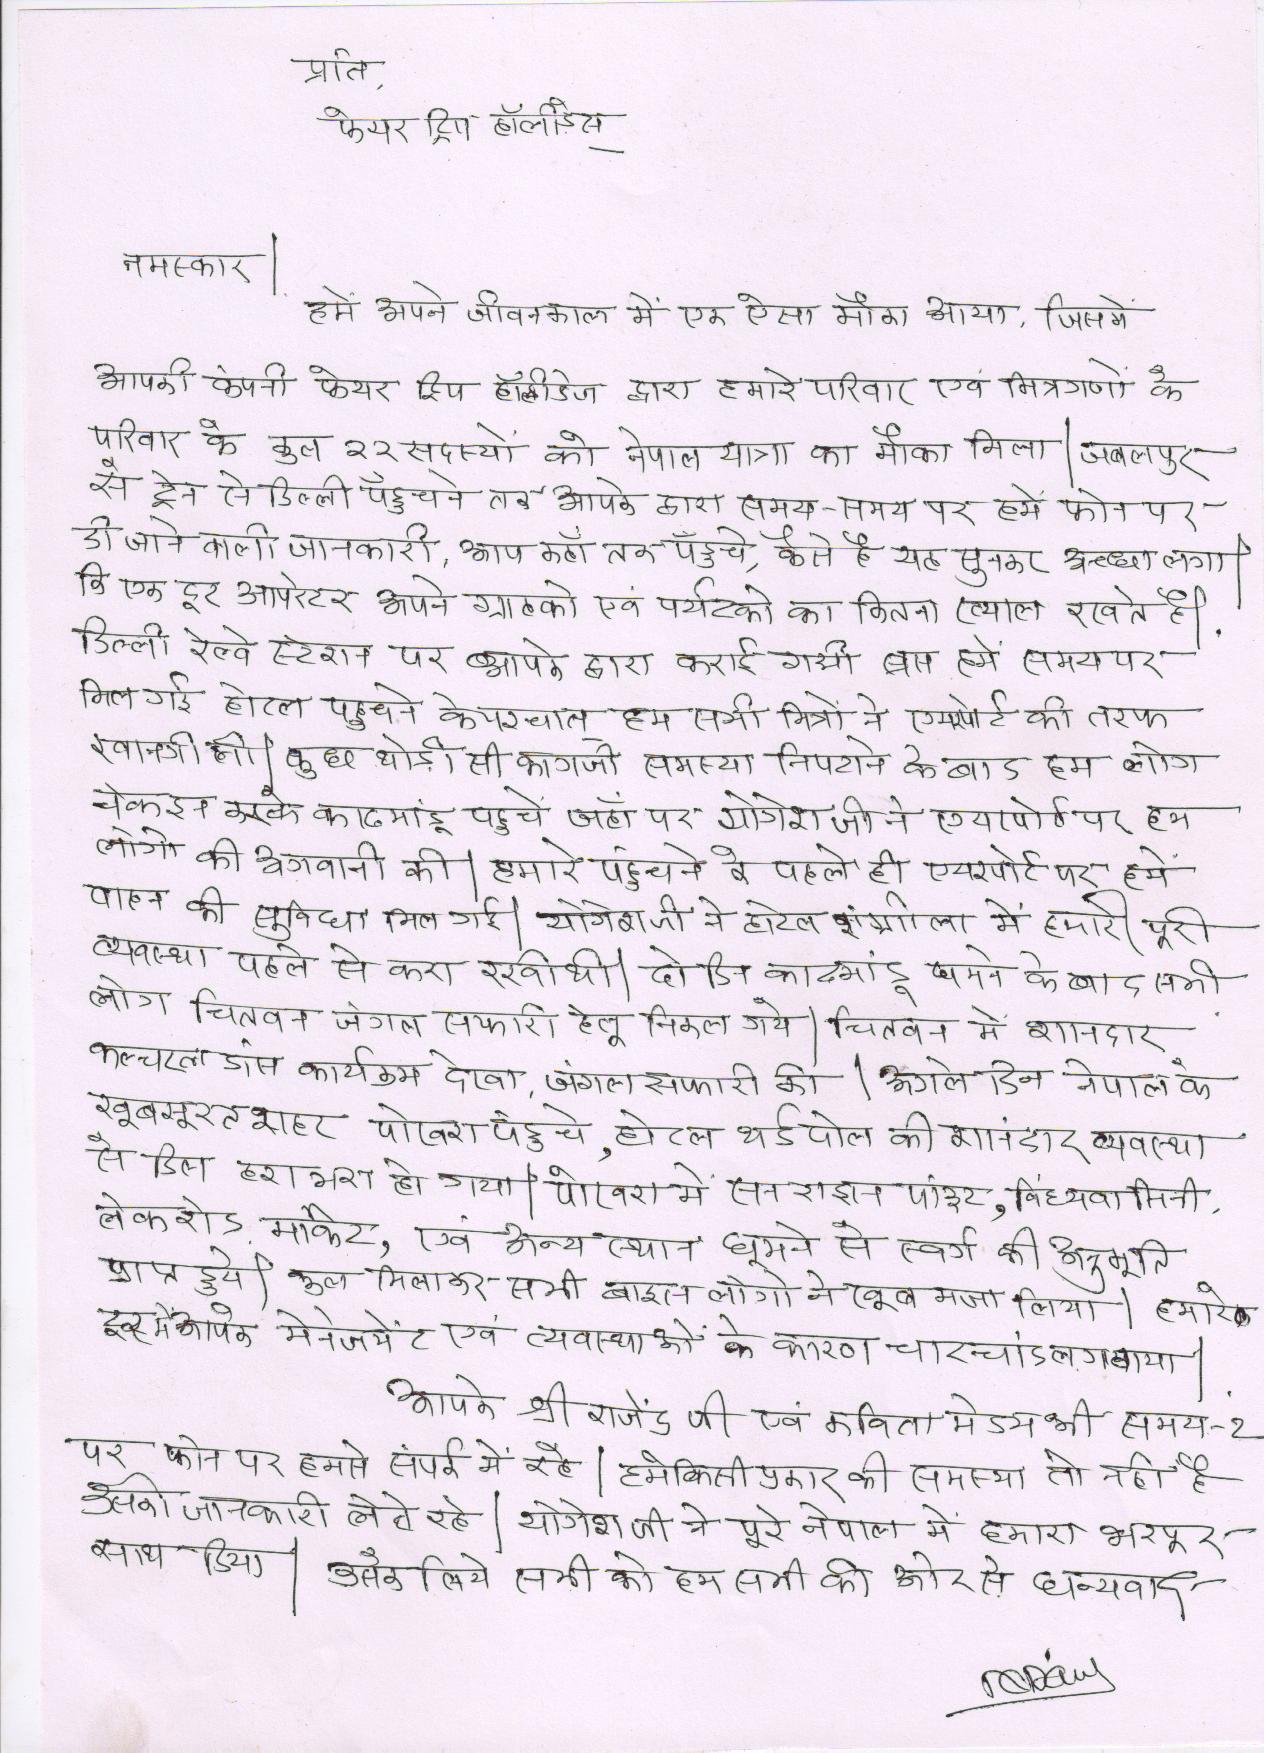 प्रति,
फेयर ट्रिप हॉलीडेस
नमस्कार|
हमें अपने जीवनकाल में एक ऐसा मौका आया, जिसमें
आपकी कंपनी फेयर ट्रिप हॉलीडेज द्वारा हमारे परिवार एवं मित्रगणों के
परिवार के कुल 22 सदस्यों को नेपाल यात्रा का मौका मिला| जबलपुर
से ट्रेन से दिल्ली पँहुचने तक आपके द्वारा समय-समय पर हमें फोन पर
दी जाने वाली जानकारी, आप कहाँ तक पँहुचे, कैसे है यह सुनकर अच्छा लगा|
कि एक टूर आपरेटर अपने ग्राहको एवं पर्यटको का कितना ख्याल रखते है|
दिल्ली रेल्वे स्टेशन पर आपके द्वारा कराई गयी बस हमें समय पर
मिल गई होटल पहुचने के पश्चात हम सभी मित्रों ने एयरपोर्ट की तरफ
रवानगी ली| कुछ थोड़ी सी कागजी समस्या निपटाने के बाद हम लोग
चेकइन करके काठमांडू पहुचें जहाँ पर योगेश जी ने एयरपोर्ट पर हम
लोगो की अगवानी की| हमारे पंहुचने के पहले ही एयरपोर्ट पर हमें
वाहन की सुविधा मिल गई| योगेश जी ने होटल शंग्रीला में हमारी पूरी
व्यवस्था पहले से करा रखी थी| दो दिन काठमांडू घूमने के बाद सभी
लोग चितवन जंगल सफारी हेतू निकल गये| चितवन में शानदार
कल्चरल डांस कार्यक्रम देखा, जंगल सफारी की| अगले दिन नेपाल के
खूबसूरत शहर पोखरा पँहुचे, होटल थर्डपोल की शानदार व्यवस्था
से दिल हराभरा हो गया| पोखरा में सनराइज पांइट, विंध्यवासिनी,
लेक रोड, मार्केट, एवं अन्य स्थान घूमने से स्वर्ग की अनुभूति
प्राप्त हुये| कुल मिलाकर सभी बाइस लोगो ने खूब मजा लिया| हमारे
टूर में आपके मेनेजमेंट एवं व्यवस्थाओं के कारण चार चांद लग गया|
आपके श्री राजेंद्र जी एवं कविता मेडम भी समय-2
पर फोन पर हमसे संपर्क में रहे| हमे किसी प्रकार की समस्या तो नही है
उसकी जानकारी लेते रहे| योगेश जी ने पूरे नेपाल में हमारा भरपूर
साथ दिया| उसके लिये सभी को हम सभी की ओर से धन्यवाद